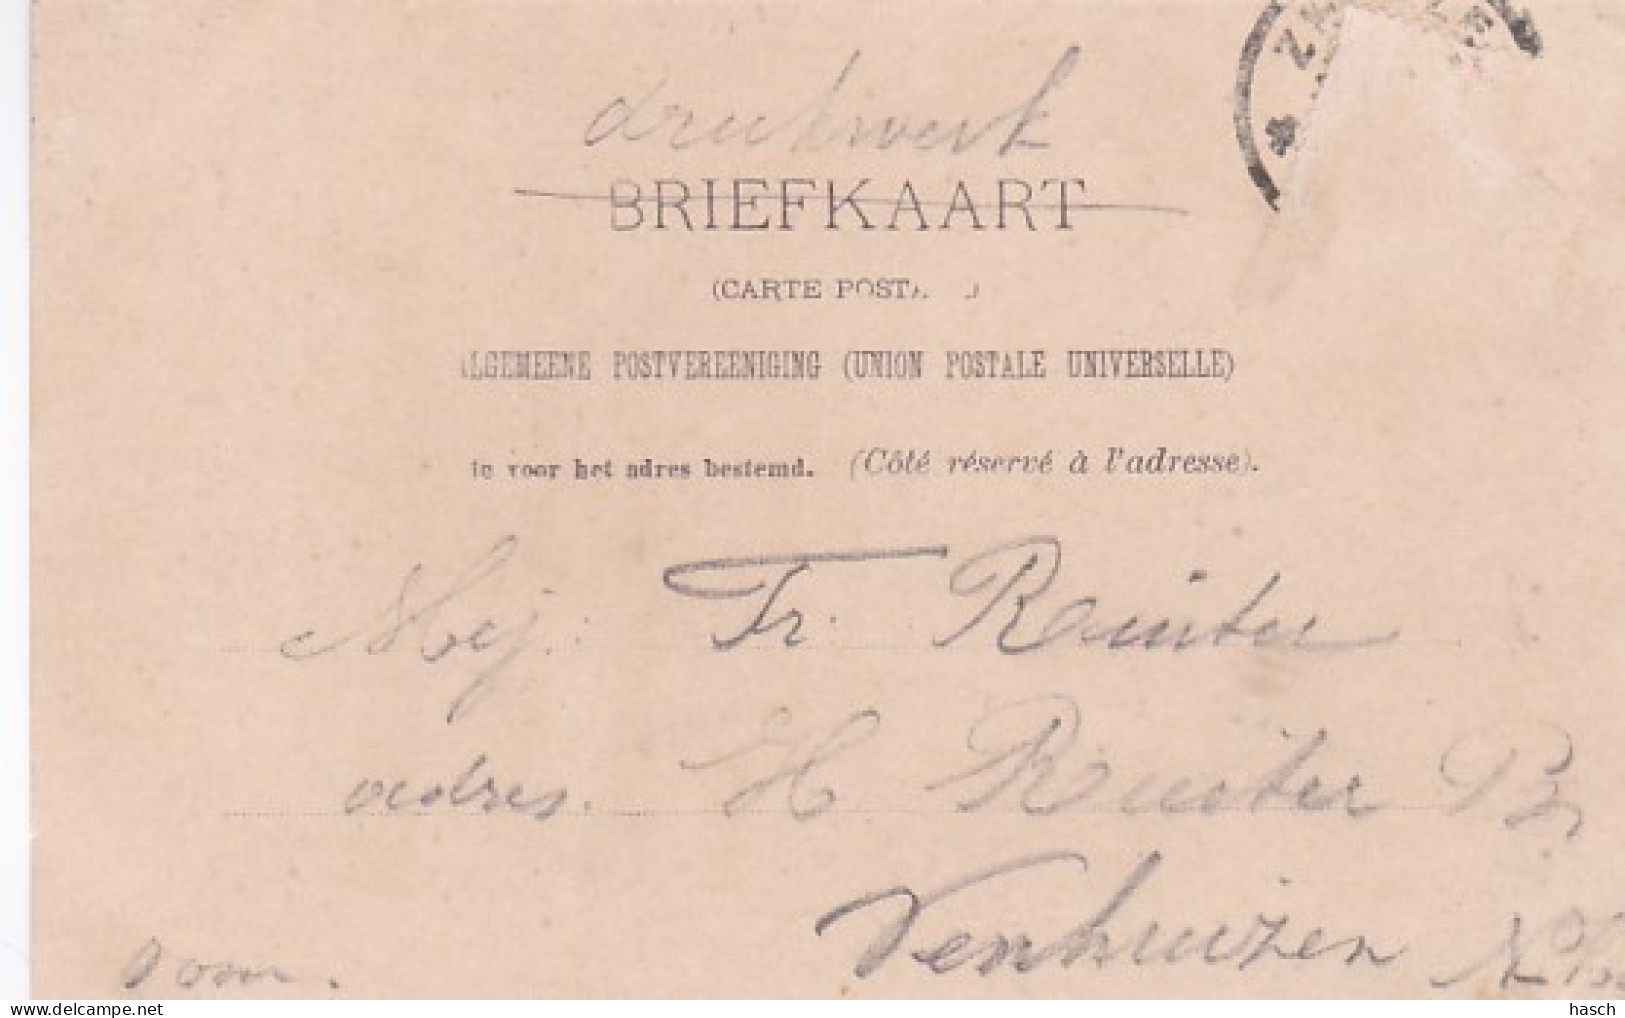 drukwerk
BRIEFKAART
(CARTE POSTA
LGEMEENE POSTVEREENIGING (UNION POSTALE UNIVERSELLE)
voor het adres bestemd. (Côté réservé à l'adresse).
Mej: Tr. Ruiter
adres. H Ruiter
Venhuizen
hasch